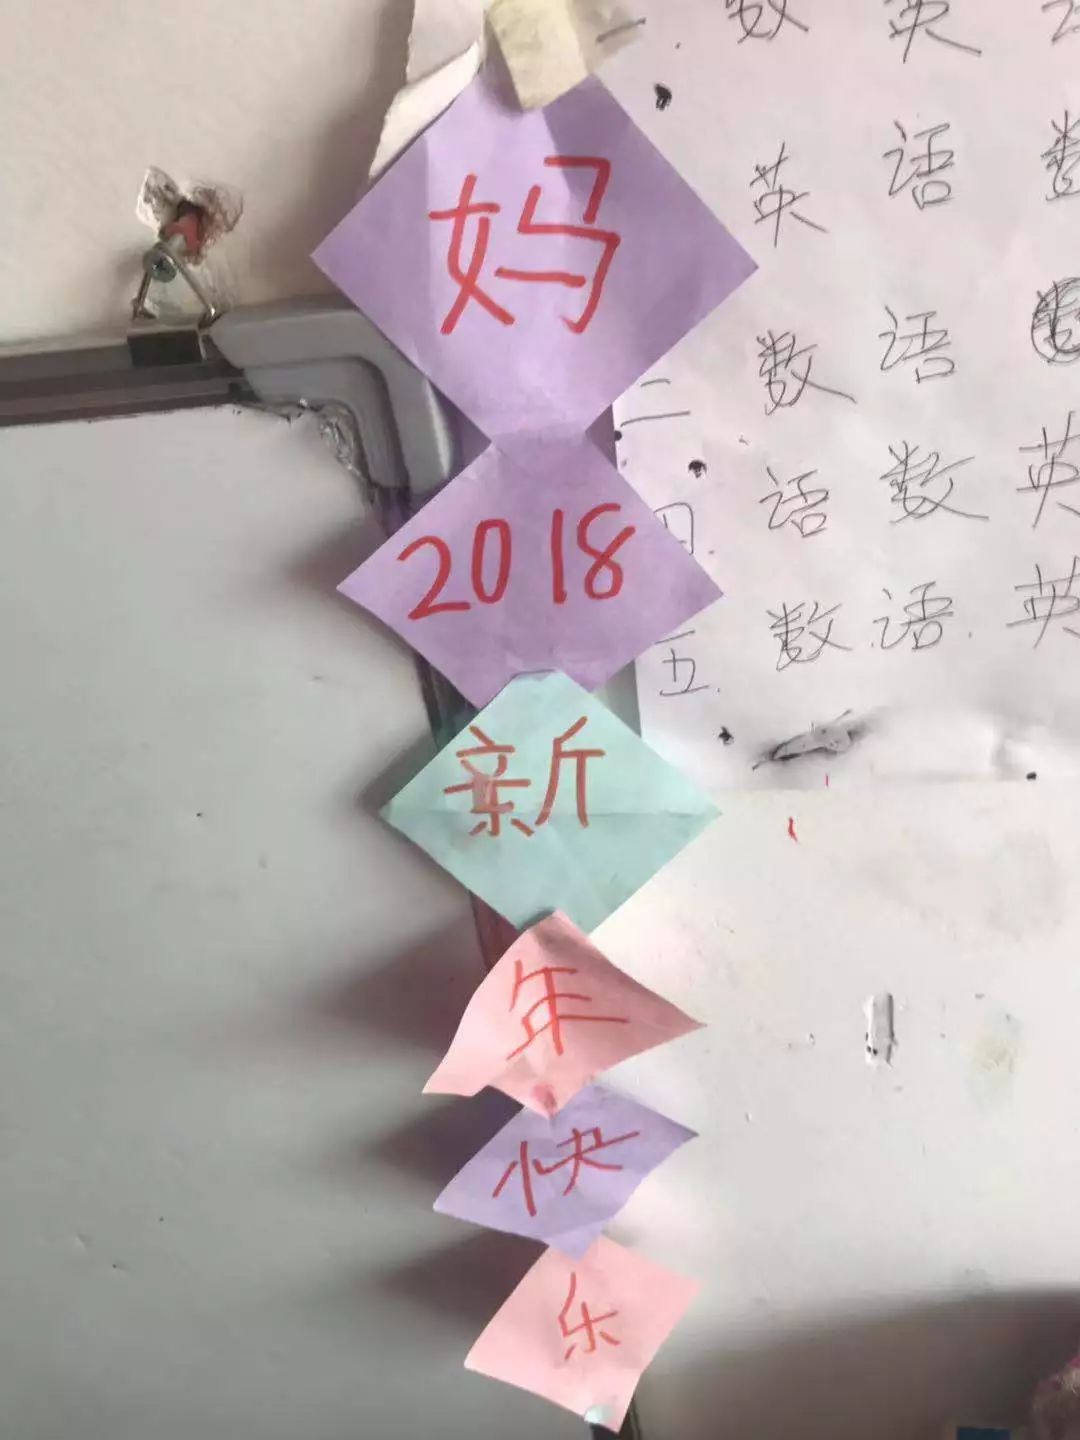 妈
2018
新
年
快
乐
一. 数 英
英 语 数
二 数 语
四. 语 数 英
五. 数 语. 英